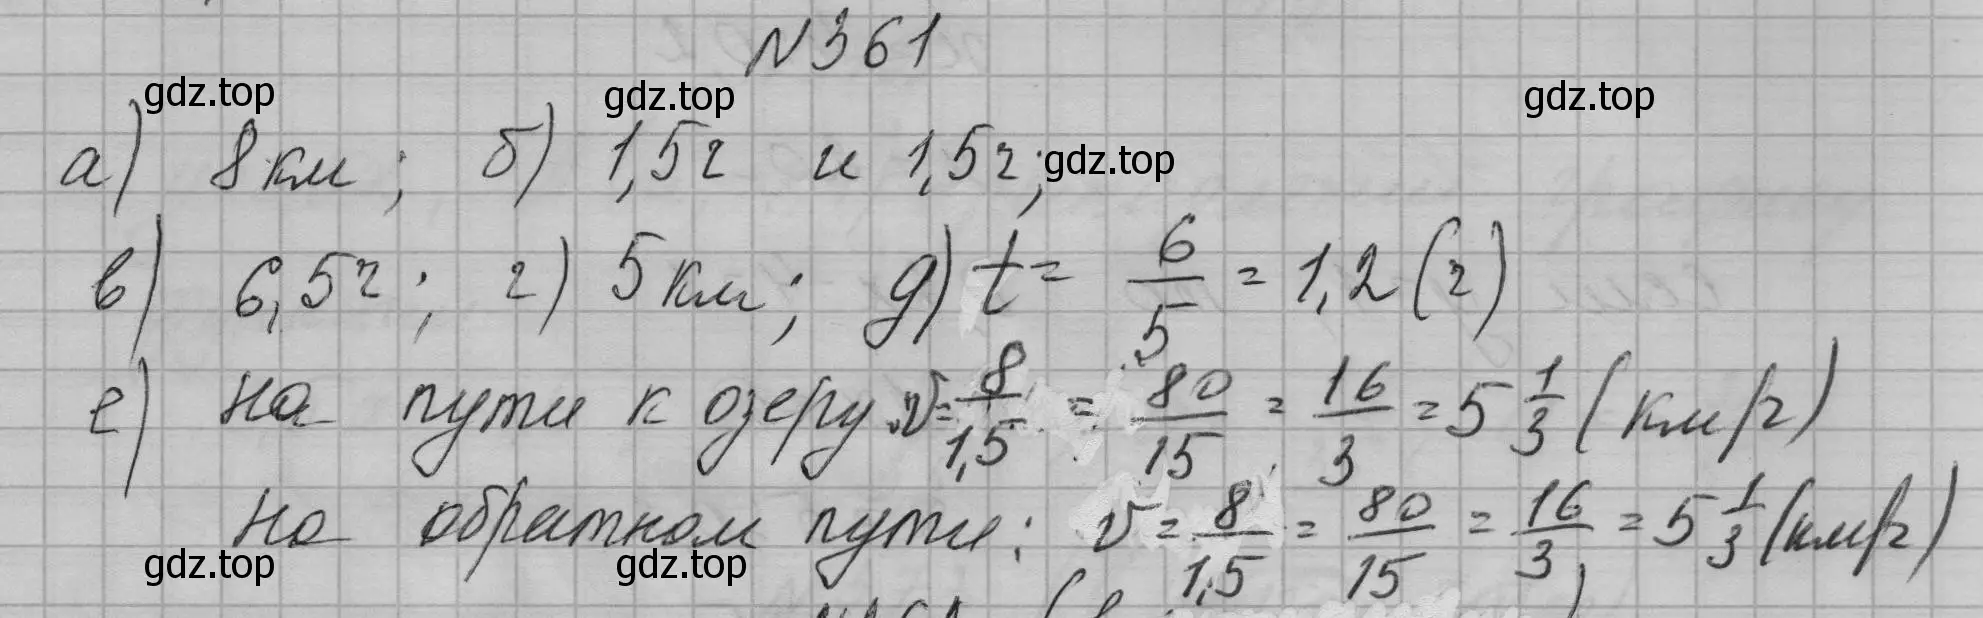 N361
gdz.top gdz.top gdz.top
а) 8 км; б) 1,5 ч и 1,5 ч; gdz.top
в) 6,5 ч; г) 5 км; д) t = 6/5 = 1,2 (ч)
е) на пути к озеру v = 8/1,5 = 80/15 = 16/3 = 5 1/3 (км/ч)
на обратном пути: v = 8/1,5 = 80/15 = 16/3 = 5 1/3 (км/ч)
gdz.top gdz.top